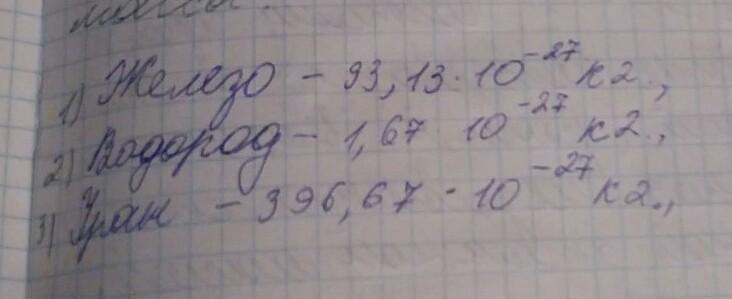 масса.
1) Железо – 93,13·10⁻²⁷ кг.,
2) Водород – 1,67 10⁻²⁷ кг.,
3) Уран – 396,67·10⁻²⁷ кг.,